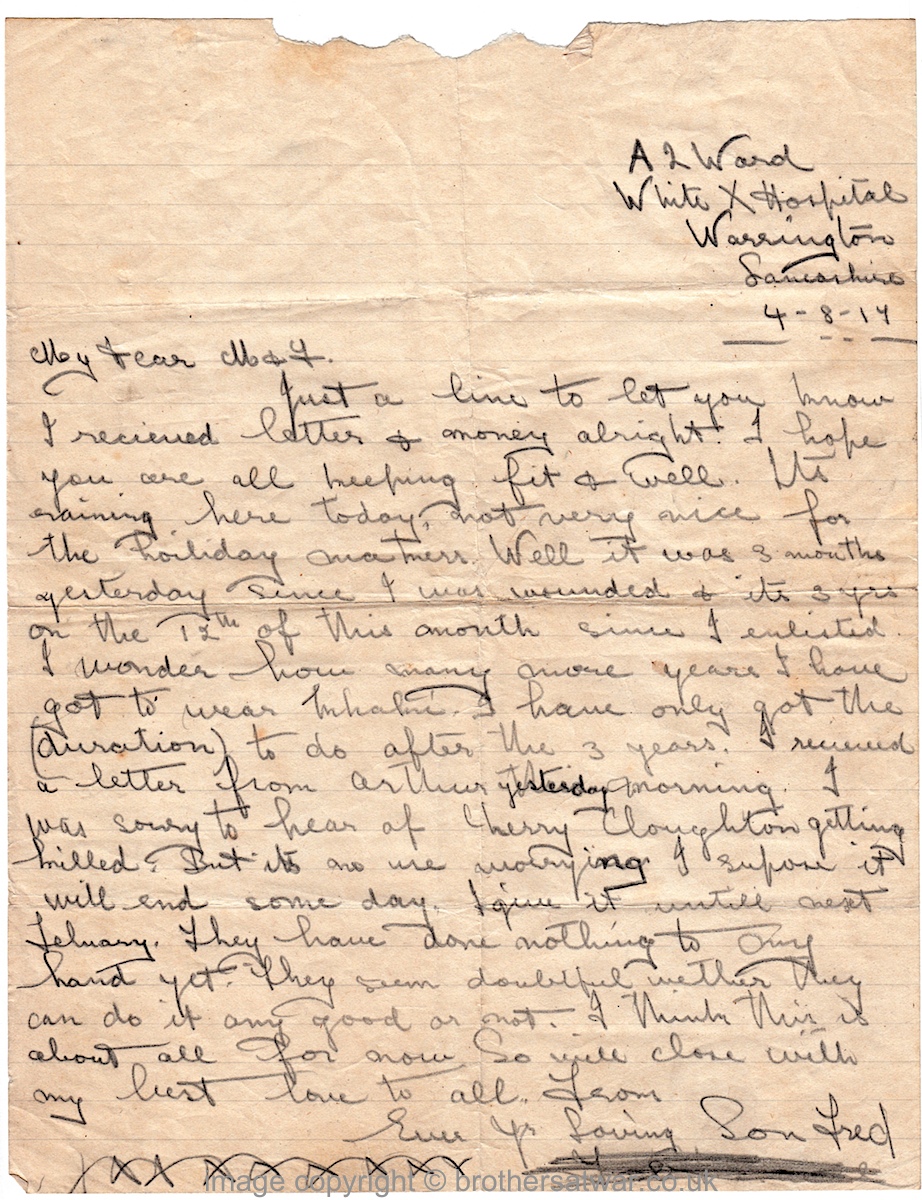 A 2 Ward
White X Hospital
Warrington
Lancashire
4-8-17
My Dear M & F.
Just a line to let you know
I recieved letter & money alright. I hope
you are all keeping fit & well. Its
raining here today, not very nice for
the holiday makers. Well it was 3 months
yesterday since I was wounded & its 3 yrs
on the 12th of this month since I enlisted.
I wonder how many more years I have
got to wear khaki. I have only got the
(duration) to do after the 3 years. I recieved
a letter from Arthur yesterday morning. I
was sorry to hear of Cloughton getting
killed. But its no use worrying I supose it
will end some day. I give it untill next
Febuary. They have done nothing to my
hand yet. They seem doubtful wether they
can do it any good or not. I think this is
about all for now So will close with
my best love to all. From
Ever Yr Loving Son Fred
XX XXXXXXX
image copyright © brothersatwar.co.uk